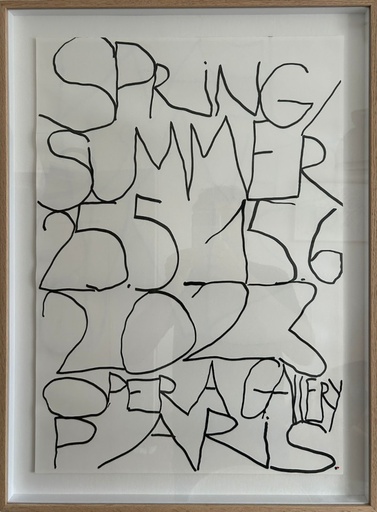 SPRiNG/
SUMMER
25.5 15.6
2023
OPERA GAllERY
PARiS